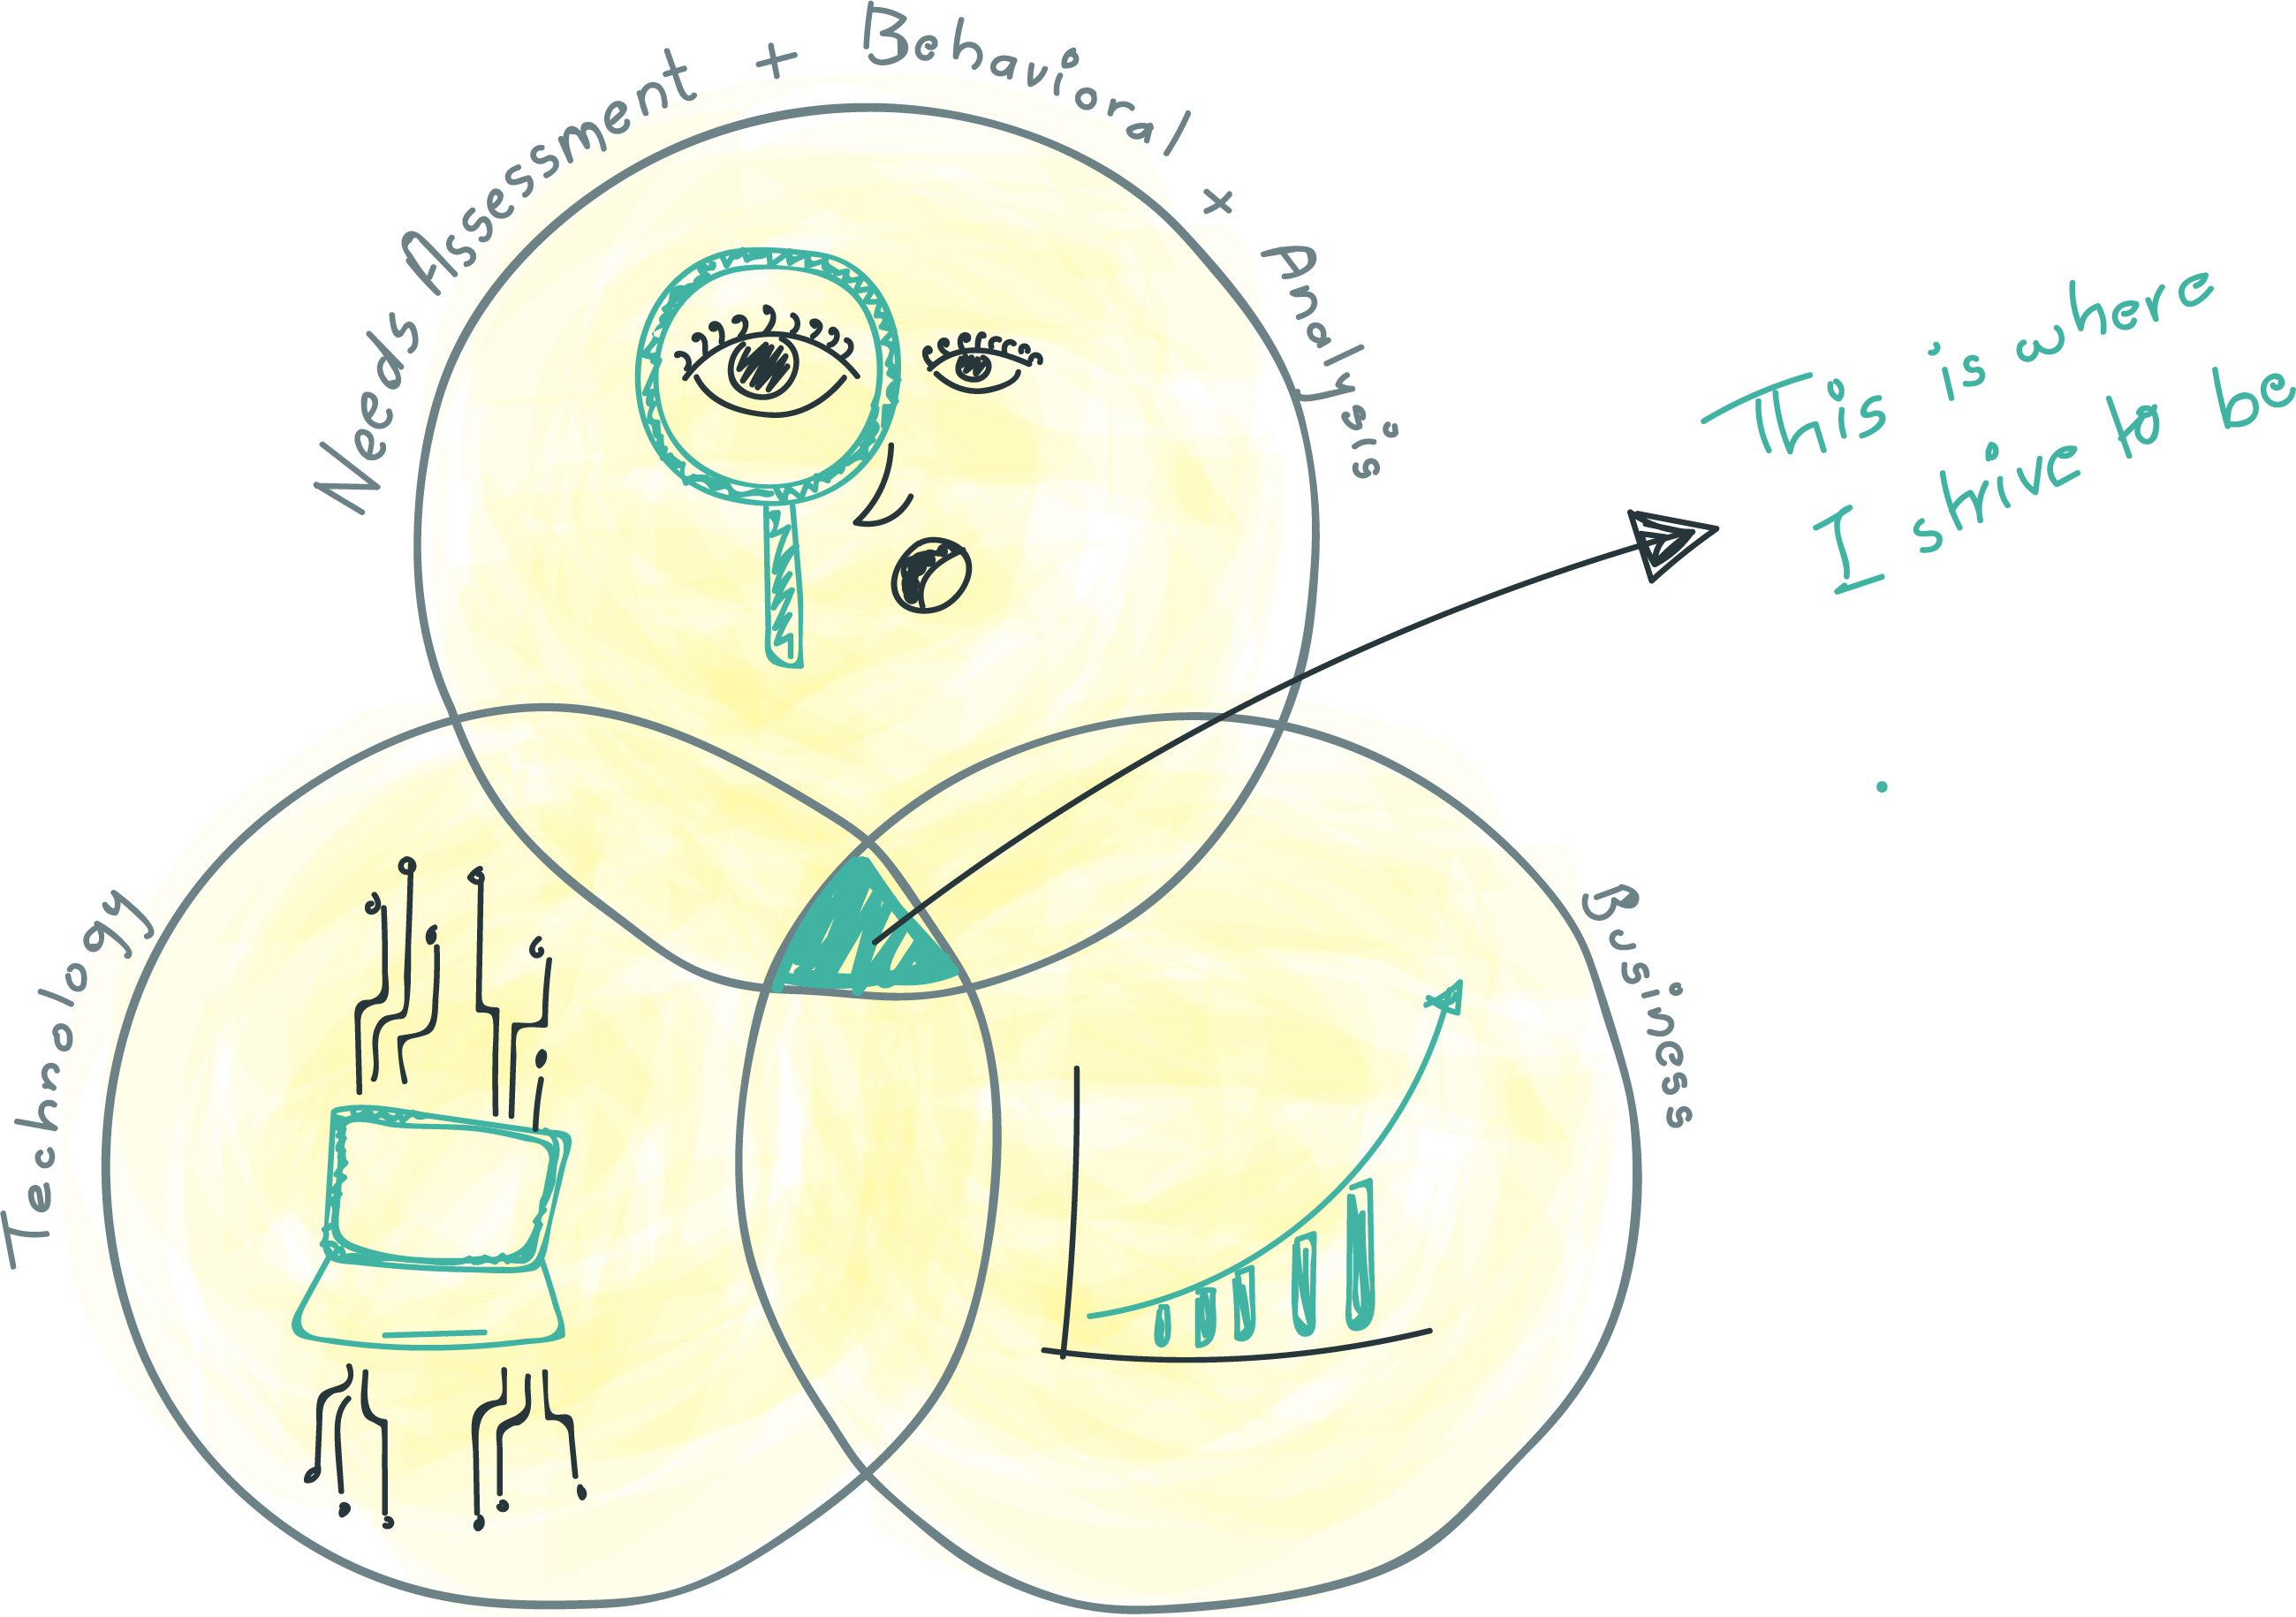 Needs Assessment + Behavioral + Analysis
This is where
I strive to be
Technology
Business